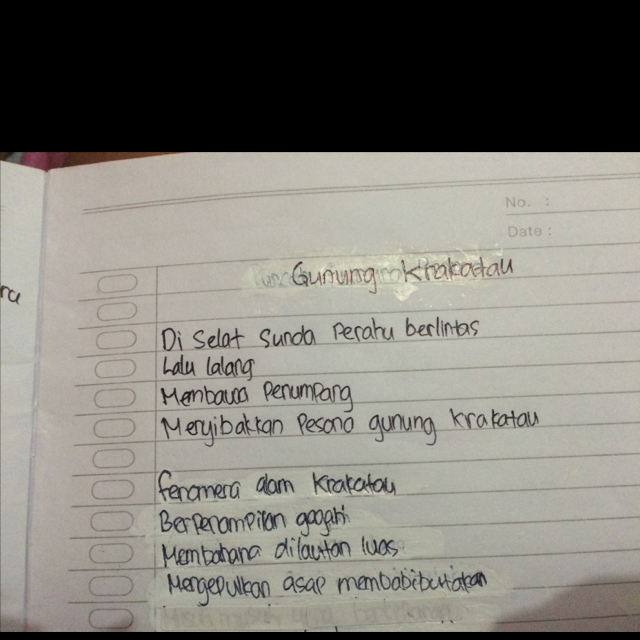 ra
No. :
Date :
Gunung Krakatau
Di Selat Sunda Perahu berlintas
Lalu lalang
Membawa Penumpang
Menyibakkan Pesona gunung Krakatau
fenomena alam Krakatau
BerPenampilan gagah
Membahana dilautan luas
Mengepulkan asap membabibutakan